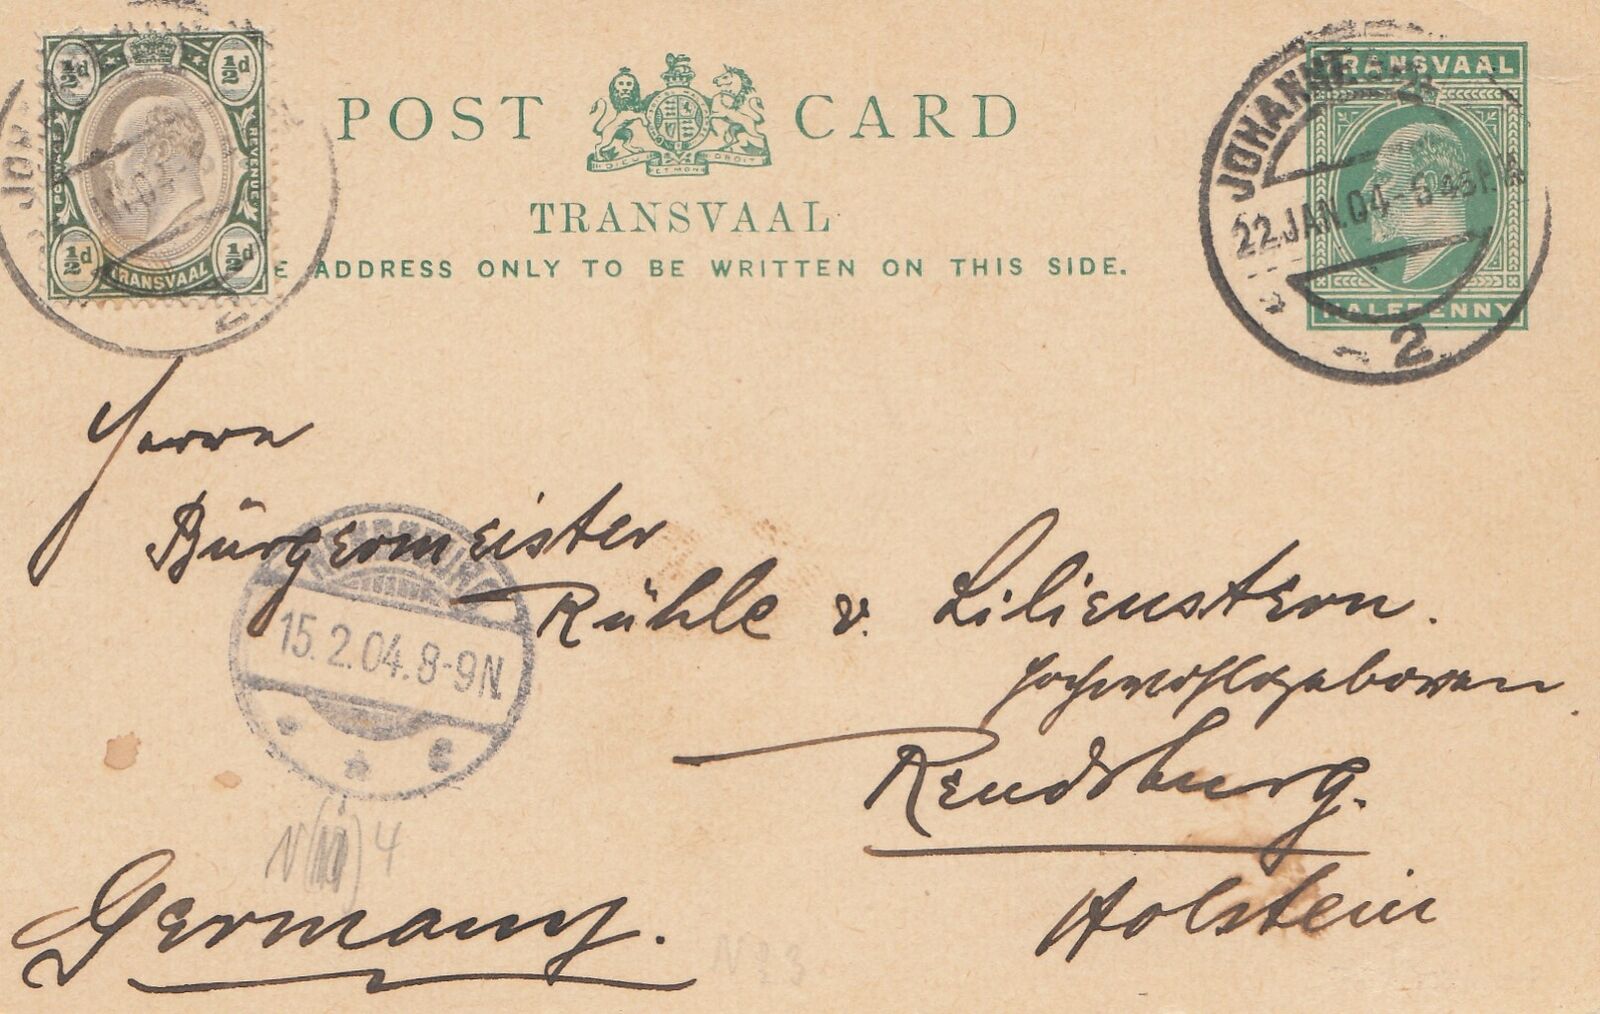 ½d ½d
POSTAGE REVENUE
½d ½d
TRANSVAAL
POST CARD
DIEU ET MON DROIT
TRANSVAAL
E ADDRESS ONLY TO BE WRITTEN ON THIS SIDE.
TRANSVAAL
HALFPENNY
JOHANNESB
22 JAN. 04 - 6 45 P.M
2
JOH
Herrn
Bürgermeister
Rühle v. Lilienstern.
Hochwohlgeboren.
Rendsburg.
Holstein
Germany.
15.2.04.8-9N
N 4
N 23